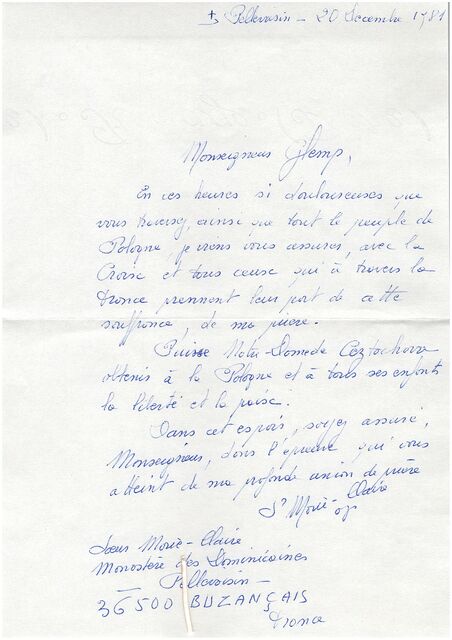 Pellevoisin - 20 Décembre 1981
Monseigneur Glemp,
En ces heures si douloureuses que
vous traversez, ainsi que tout le peuple de
Pologne, je viens vous assurer, avec la
et tous ceux qui à travers la
France prennent leur part de cette
souffrance, de ma prière.
Puisse Notre-Dame de Częstochowa
obtenir à la Pologne et à tous ses enfants
la liberté et la paix.
Dans cet espoir, soyez assuré,
Monseigneur, dans l'épreuve qui vous
atteint de ma profonde union de prière
Sr Marie-Claire
op
Soeur Marie-Claire
Monastère des Dominicaines
Pellevoisin -
36500 BUZANÇAIS
France